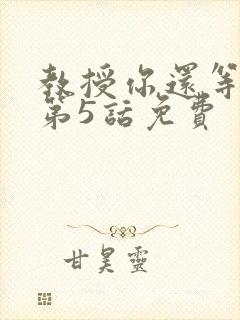 教授你還等
第5話免費
甘昊靈